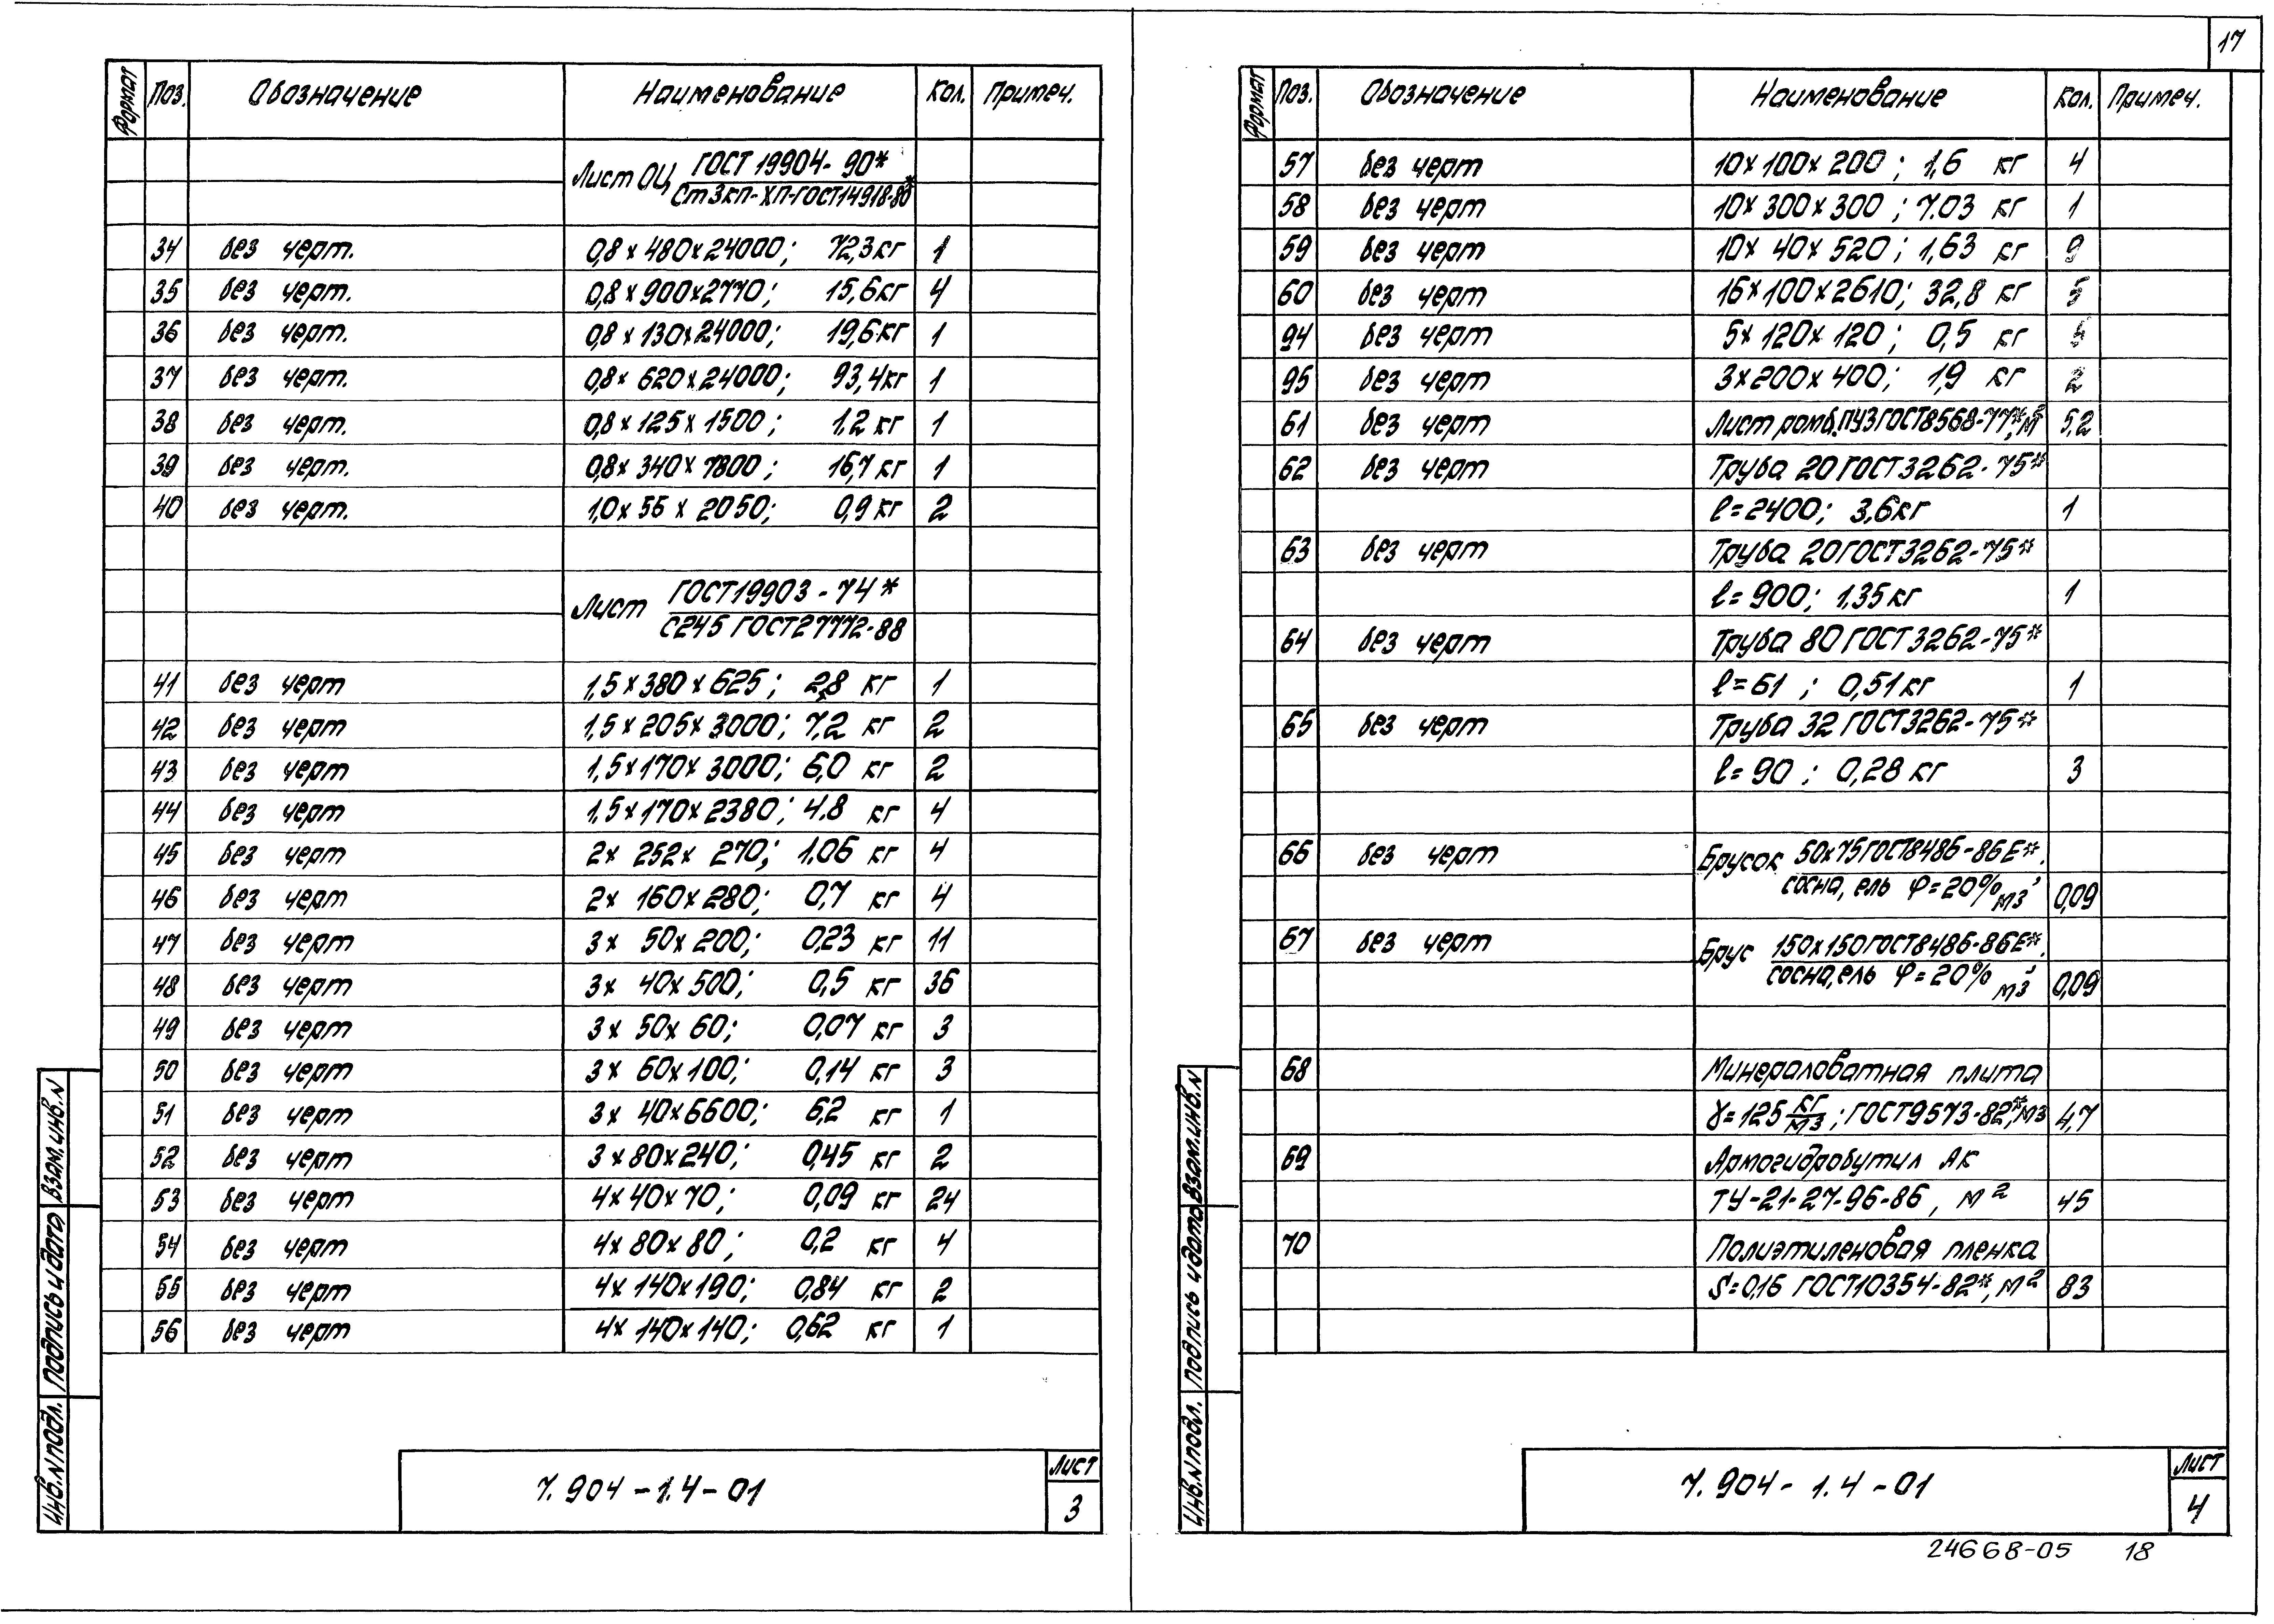 17
Формат Поз. Обозначение Наименование Кол. Примеч.
Лист ОЦ ГОСТ 19904-90*
Ст3кп-ХП-ГОСТ14918-80*
34 без черт. 0,8×480×24000; 72,3кг 1
35 без черт. 0,8×900×2770; 15,6кг 4
36 без черт. 0,8×130×24000; 19,6кг 1
37 без черт. 0,8×620×24000; 93,4кг 1
38 без черт. 0,8×125×1500; 1,2кг 1
39 без черт. 0,8×340×7800; 16,7кг 1
40 без черт. 1,0×56×2050; 0,9кг 2
Лист ГОСТ19903-74*
С245 ГОСТ27772-88
41 без черт 1,5×380×625; 2,8 кг 1
42 без черт 1,5×205×3000; 7,2 кг 2
43 без черт 1,5×170×3000; 6,0 кг 2
44 без черт 1,5×170×2380; 4.8 кг 4
45 без черт 2×252×270; 1.06 кг 4
46 без черт 2×160×280; 0,7 кг 4
47 без черт 3×50×200; 0,23 кг 11
48 без черт 3×40×500; 0,5 кг 36
49 без черт 3×50×60; 0,07 кг 3
50 без черт 3×60×100; 0,14 кг 3
51 без черт 3×40×6600; 6,2 кг 1
52 без черт 3×80×240; 0,45 кг 2
53 без черт 4×40×70; 0,09 кг 24
54 без черт 4×80×80; 0,2 кг 4
55 без черт 4×140×190; 0,84 кг 2
56 без черт 4×140×140; 0,62 кг 1
Инв.N подл. Подпись и дата Взам.инв.N
7.904-1.4-01
Лист
3
Формат Поз. Обозначение Наименование Кол. Примеч.
57 без черт 10×100×200; 1,6 кг 4
58 без черт 10×300×300; 7.03 кг 1
59 без черт 10×40×520; 1,63 кг 9
60 без черт 16×100×2610; 32,8 кг 5
94 без черт 5×120×120; 0,5 кг
95 без черт 3×200×400; 1,9 кг 2
61 без черт Лист ромб.ПУ3 ГОСТ8568-77*, м² 5,2
62 без черт Труба 20 ГОСТ3262-75*
ℓ=2400; 3,6кг 1
63 без черт Труба 20 ГОСТ3262-75*
ℓ=900; 1,35кг 1
64 без черт Труба 80 ГОСТ3262-75*
ℓ=61; 0,51кг 1
65 без черт Труба 32 ГОСТ3262-75*
ℓ=90; 0,28кг 3
66 без черт Брусок 50х75ГОСТ8486-86Е*.
сосна, ель φ=20%, м3 0,09
67 без черт Брус 150х150ГОСТ8486-86Е*.
сосна, ель φ=20%, м3 0,09
68 Минераловатная плита
γ=125 кг/м3; ГОСТ9573-82*, м3 4,7
69 Армогидробутил АК
ТУ-21-27-96-86, м² 45
70 Полиэтиленовая пленка
S=0,16 ГОСТ10354-82*, м² 83
Инв.N подл. Подпись и дата Взам.инв.N
7.904-1.4-01
Лист
4
24668-05 18